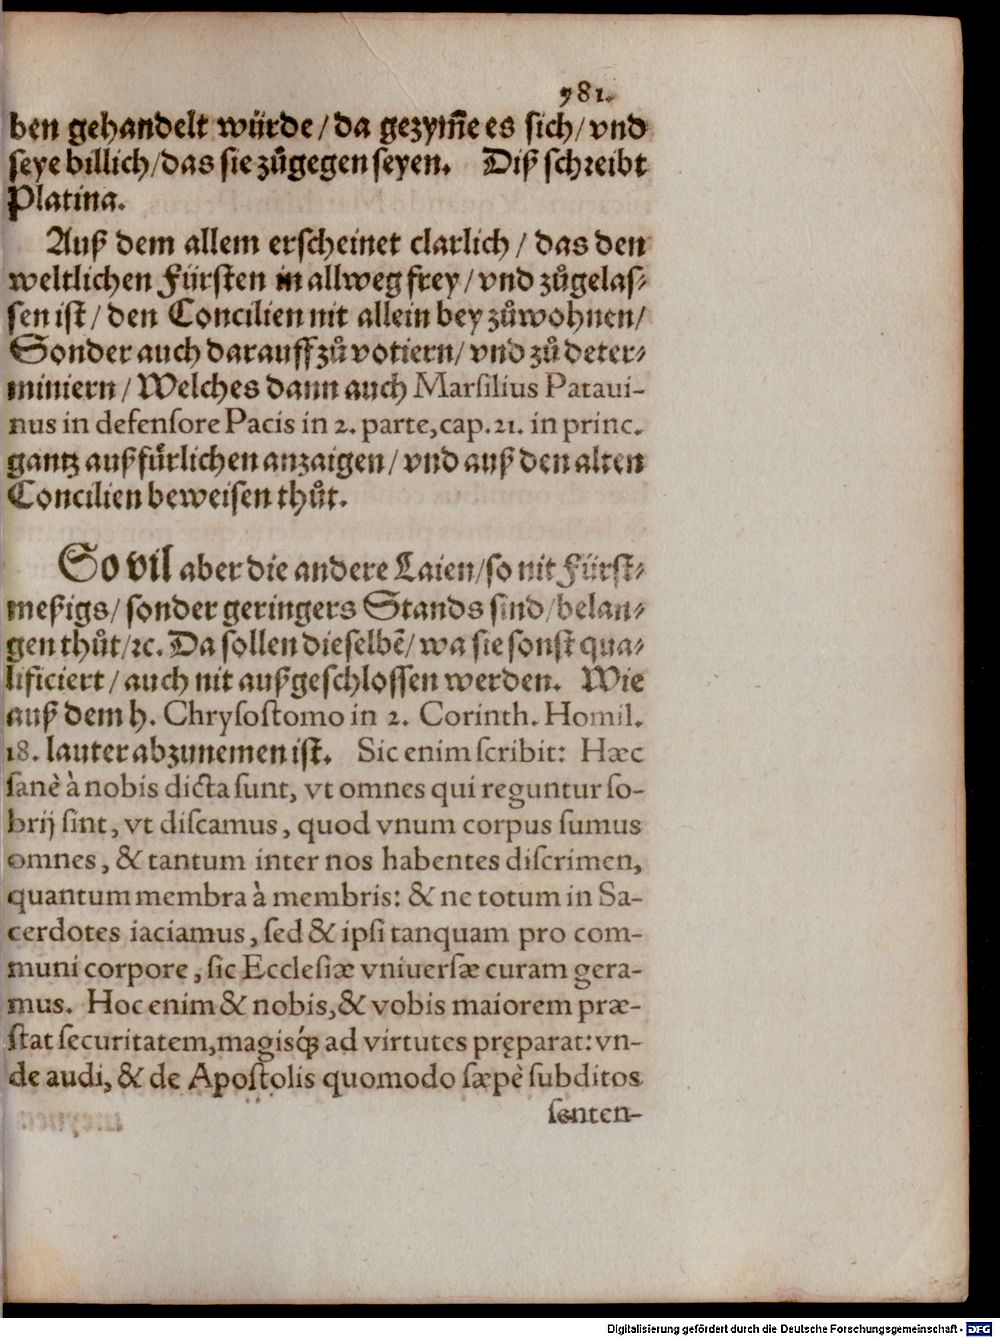 981.
ben gehandelt würde/ da gezym̃e es sich/ vnd
seye billich/das sie zůgegen seyen. Diß schreibt
Platina.
Auß dem allem erscheinet clarlich / das den
weltlichen Fürsten in allweg frey / vnd zůgelas-
sen ist / den Concilien nit allein bey zůwohnen/
Sonder auch darauff zů votiern/ vnd zů deter-
miniern / Welches dann auch Marsilius Pataui-
nus in defensore Pacis in 2. parte, cap. 21. in princ.
gantz außfürlichen anzaigen/ vnd auß den alten
Concilien beweisen thůt.
So vil aber die andere Laien/so nit Fürst-
meßigs/ sonder geringers Stands sind/belan-
gen thůt/ꝛc. Da sollen dieselbẽ/ wa sie sonst qua-
lificiert / auch nit außgeschlossen werden. Wie
auß dem h. Chrysostomo in 2. Corinth. Homil.
18. lauter abzunemen ist. Sic enim scribit: Hæc
sanè à nobis dicta sunt, vt omnes qui reguntur so-
brij sint, vt discamus, quod vnum corpus sumus
omnes, & tantum inter nos habentes discrimen,
quantum membra à membris: & ne totum in Sa-
cerdotes iaciamus, sed & ipsi tanquam pro com-
muni corpore, sic Ecclesiæ vniuersæ curam gera-
mus. Hoc enim & nobis, & vobis maiorem præ-
stat securitatem, magisq́; ad virtutes pręparat: vn-
de audi, & de Apostolis quomodo sæpè subditos
senten-
Digitalisierung gefördert durch die Deutsche Forschungsgemeinschaft - DFG